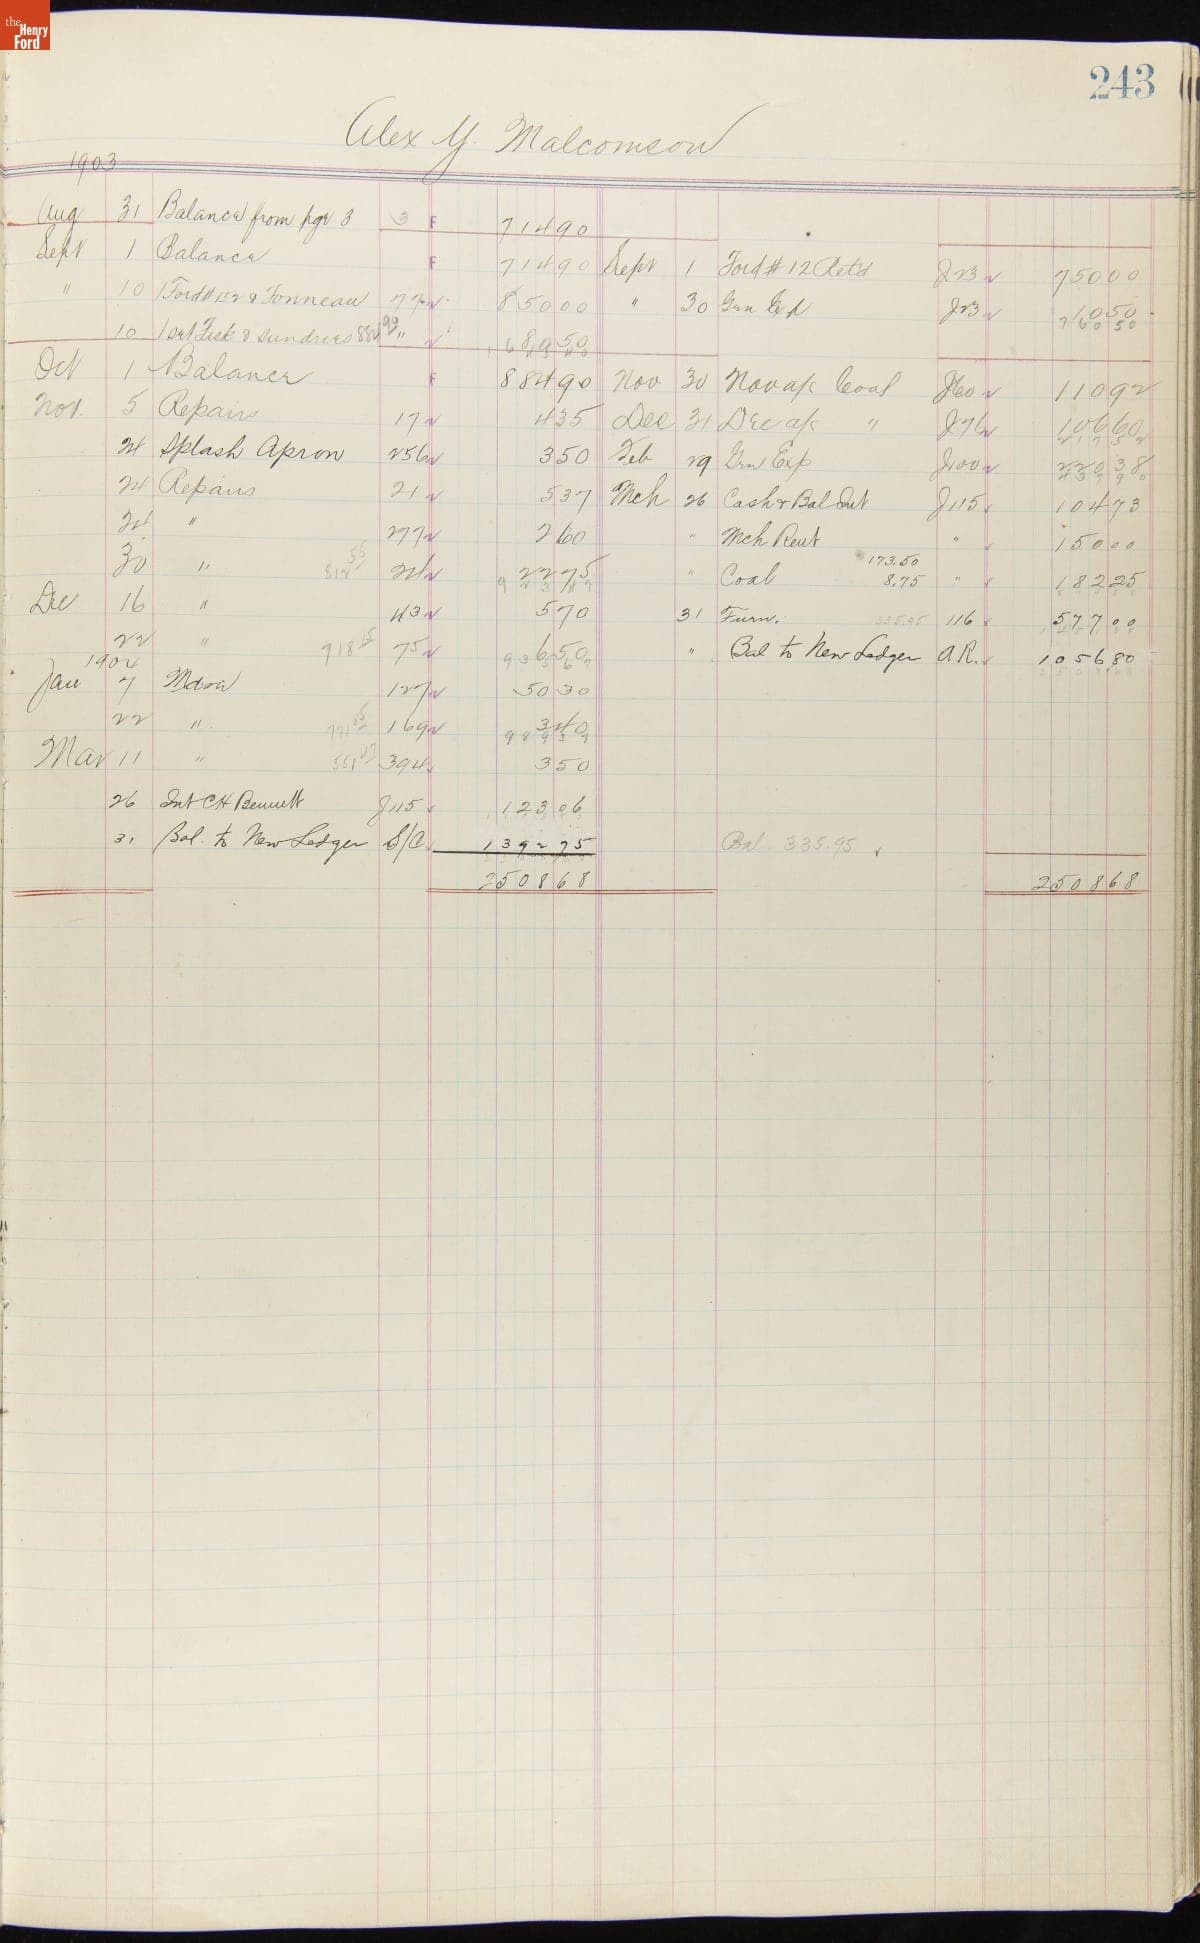 the Henry Ford
243
Alex Y. Malcomson
1903
Aug 31 Balance from pge 3 3 F 71490
Sept 1 Balance F 71490 Sept 1 Ford # 12 Retd J23 75000
" 10 1 Ford # 152 & Tonneau 77 85000 " 30 Gen Exp J23 1050
76050
10 1 set Fisk & Sundries 884 90 " 8950
Oct 1 Balance F 88490 Nov 30 Nov a/c Coal J60 11092
Nov. 5 Repairs 17 435 Dec 31 Dec a/c " J76 10660
24 Splash Apron 256 350 Feb 29 Gen Exp J100 22038
24 Repairs 21 537 Mch 26 Cash & Bal Int J115 10473
24 " 277 260 " Mch Rent " 15000
30 " 812 55 21 2275 " Coal 173.50 8.75 " 18225
Dec 16 " 43 570 31 Furn. 335.95 116 57700
22 " 718 15 75 650 " Bal to New Ledger A.R. 105680
1904
Jan 7 Mdse 127 5030
22 " 169 340
Mar 11 " 551 47 394 350
26 Int CH Bennett J115 12306
31 Bal. to New Ledger S/C 139275 Bal 335.95
250868 250868